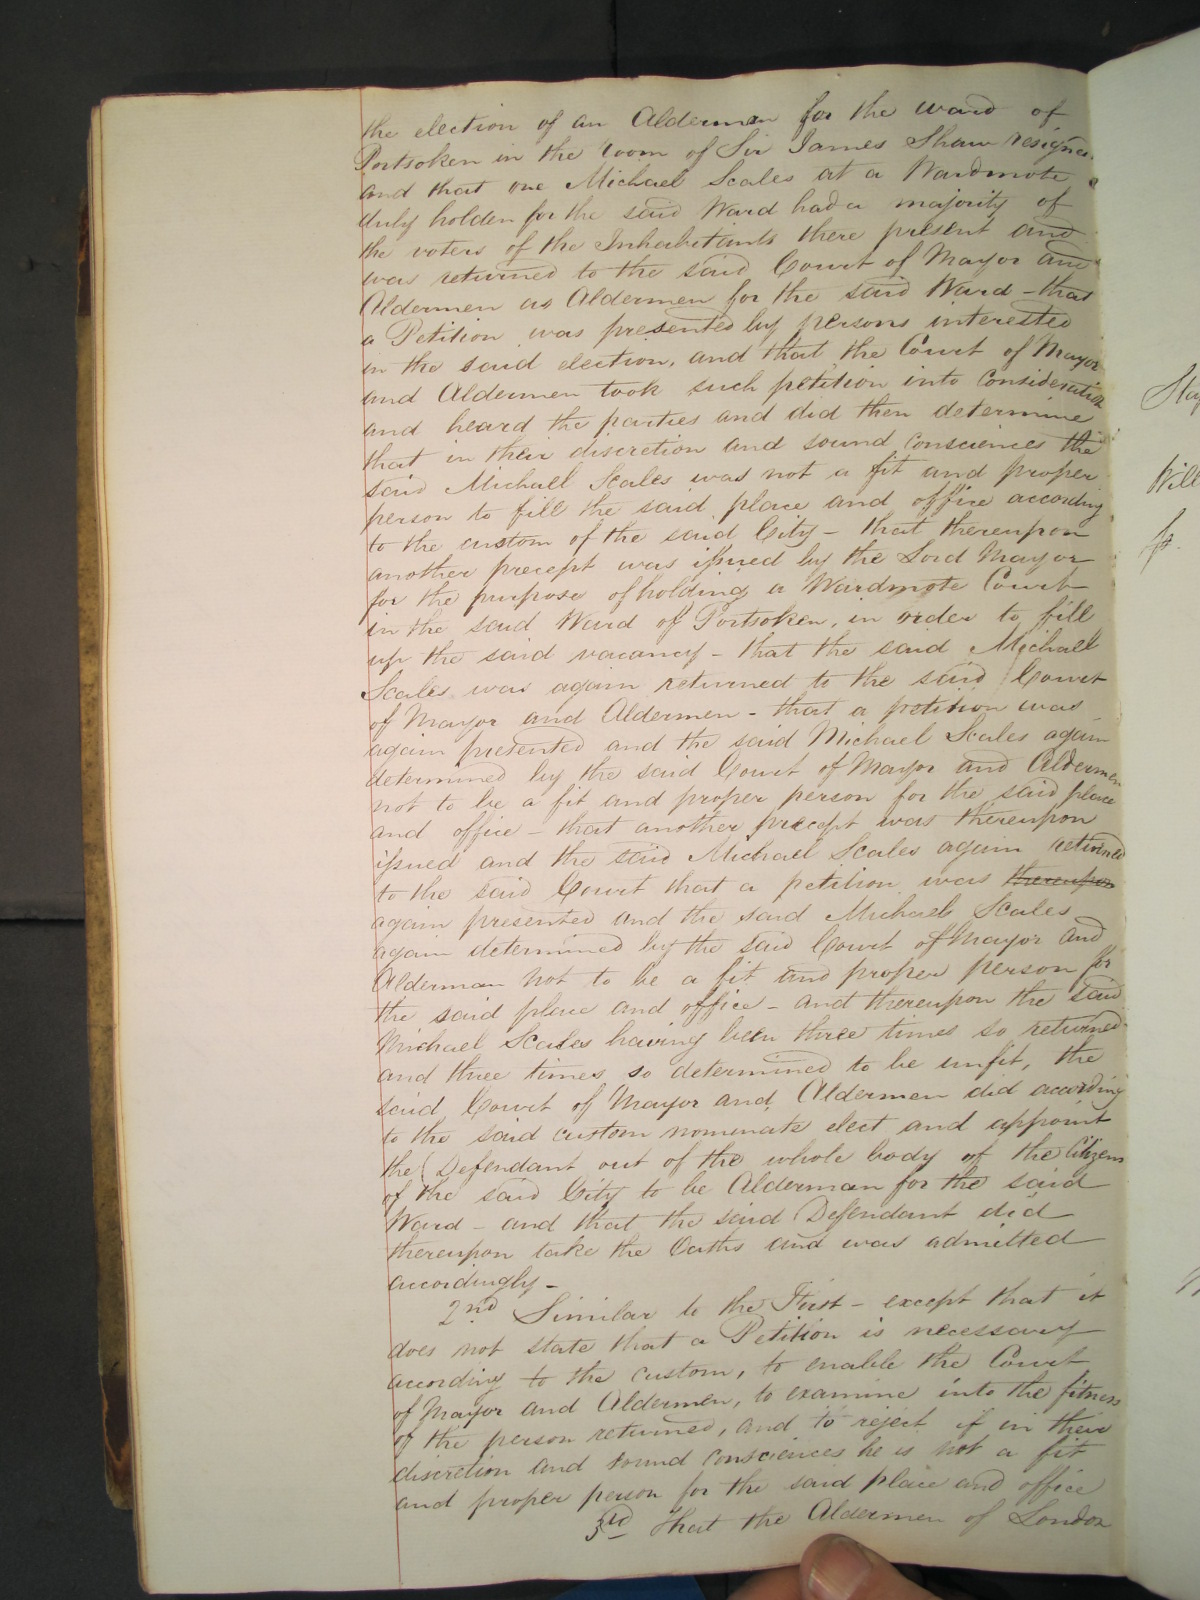 the election of an Alderman for the ward of
Portsoken in the room of Sir James Shaw resigned
and that one Michael Scales at a Wardmote
duly holden for the said Ward had a majority of
the voters of the Inhabitants there present and
was returned to the said Court of Mayor and
Aldermen as Aldermen for the said Ward - that
a Petition was presented by persons interested
in the said election, and that the Court of Mayor
and Aldermen took such petition into consideration
and heard the parties and did then determine
that in their discretion and sound consciences the
said Michael Scales was not a fit and proper
person to fill the said place and office according
to the custom of the said City - that thereupon
another precept was issued by the Lord Mayor
for the purpose of holding a Wardmote Court
in the said Ward of Portsoken, in order to fill
up the said vacancy - that the said Michael
Scales was again returned to the said Court
of Mayor and Aldermen - that a petition was
again presented and the said Michael Scales again
determined by the said Court of Mayor and Aldermen
not to be a fit and proper person for the said place
and office - that another precept was thereupon
issued and the said Michael Scales again returned
to the said Court that a petition was thereupon
again presented and the said Michael Scales
again determined by the said Court of Mayor and
Alderman not to be a fit and proper person for
the said place and office - and thereupon the said
Michael Scales having been three times so returned
and three times so determined to be unfit, the
said Court of Mayor and Aldermen did according
to the said custom nominate elect and appoint
the Defendant out of the whole body of the Citizens
of the said City to be Alderman for the said
Ward - and that the said Defendant did
thereupon take the Oaths and was admitted
accordingly -
2nd Similar to the First - except that it
does not state that a Petition is necessary
according to the custom, to enable the Court
of Mayor and Aldermen, to examine into the fitness
of the person returned, and to reject if in their
discretion and sound consciences he is not a fit
and proper person for the said place and office
3rd That the Aldermen of London
Will